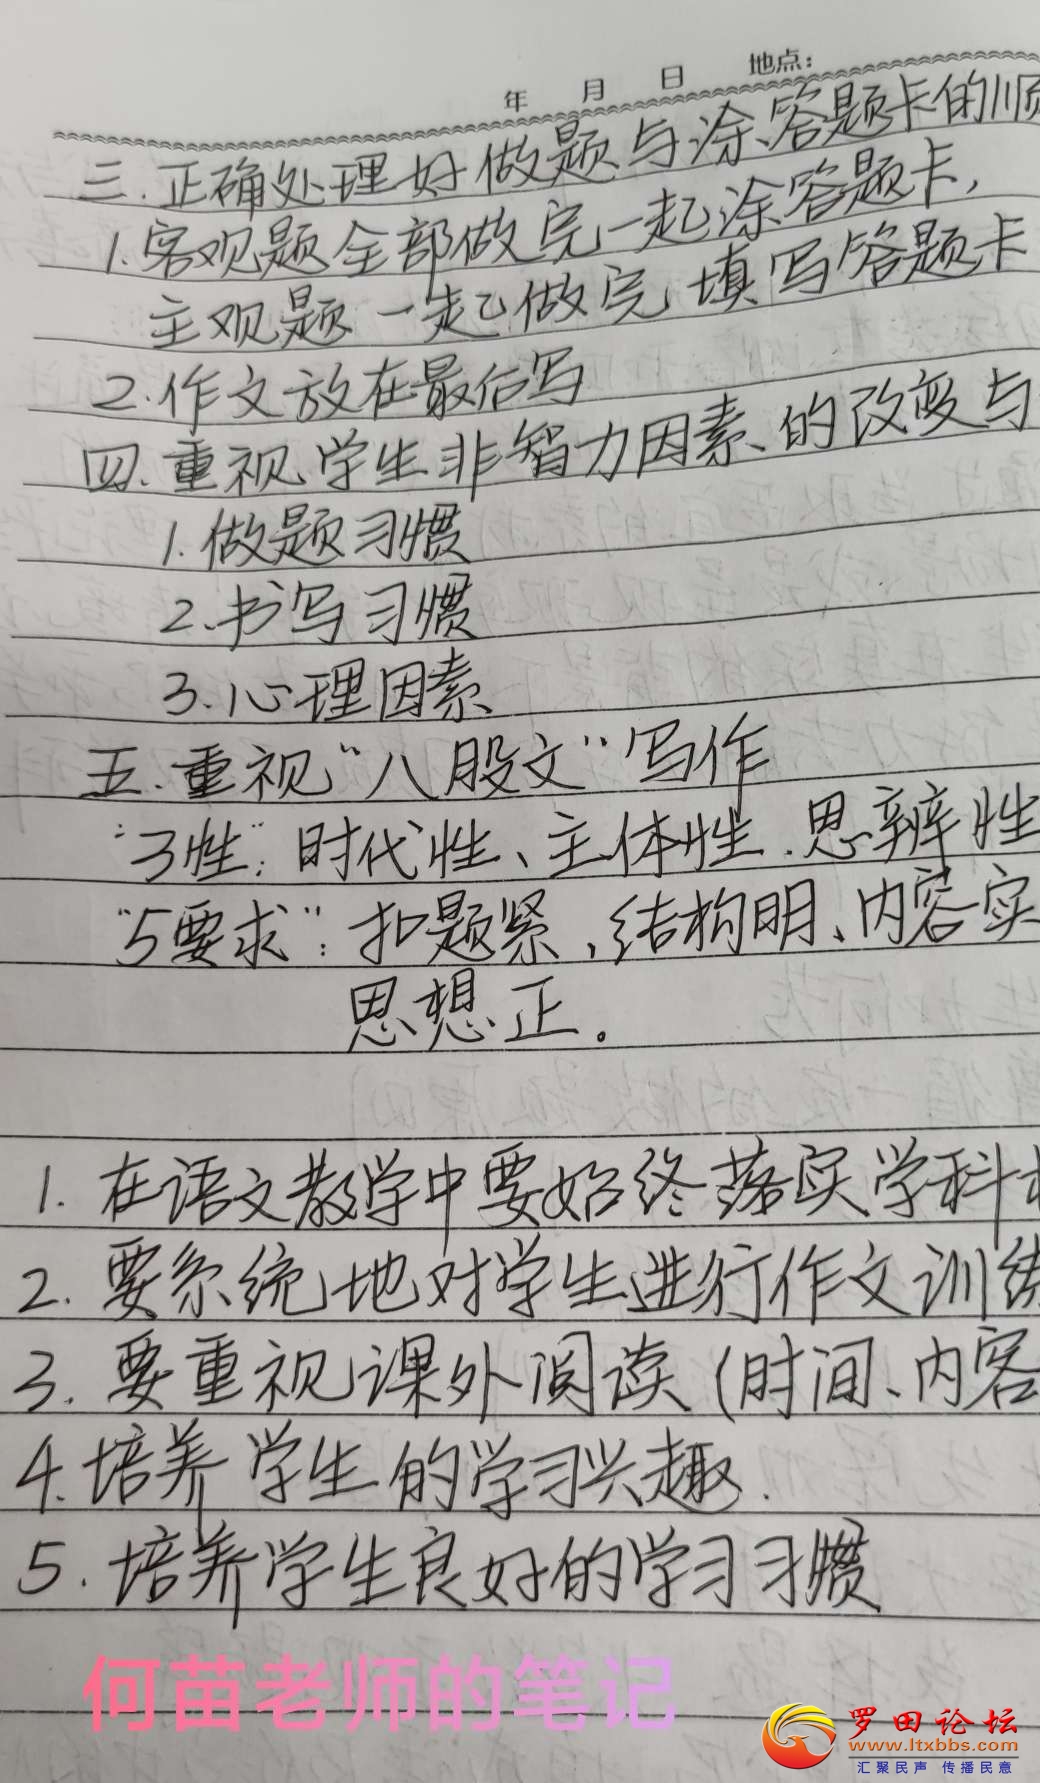 年 月 日 地点:
三.正确处理好做题与涂答题卡的顺
1.客观题全部做完一起涂答题卡,
主观题一起做完填写答题卡
2.作文放在最后写
四.重视学生非智力因素的改变与
1.做题习惯
2.书写习惯
3.心理因素
五.重视“八股文”写作
“3性”:时代性、主体性.思辨性
“5要求”:扣题紧、结构明、内容实
思想正。
1.在语文教学中要始终落实学科
2.要系统地对学生进行作文训练
3.要重视课外阅读(时间、内容
4.培养学生的学习兴趣.
5.培养学生良好的学习习惯
何苗老师的笔记
罗田论坛
www.ltxbbs.com
汇聚民声 传播民意